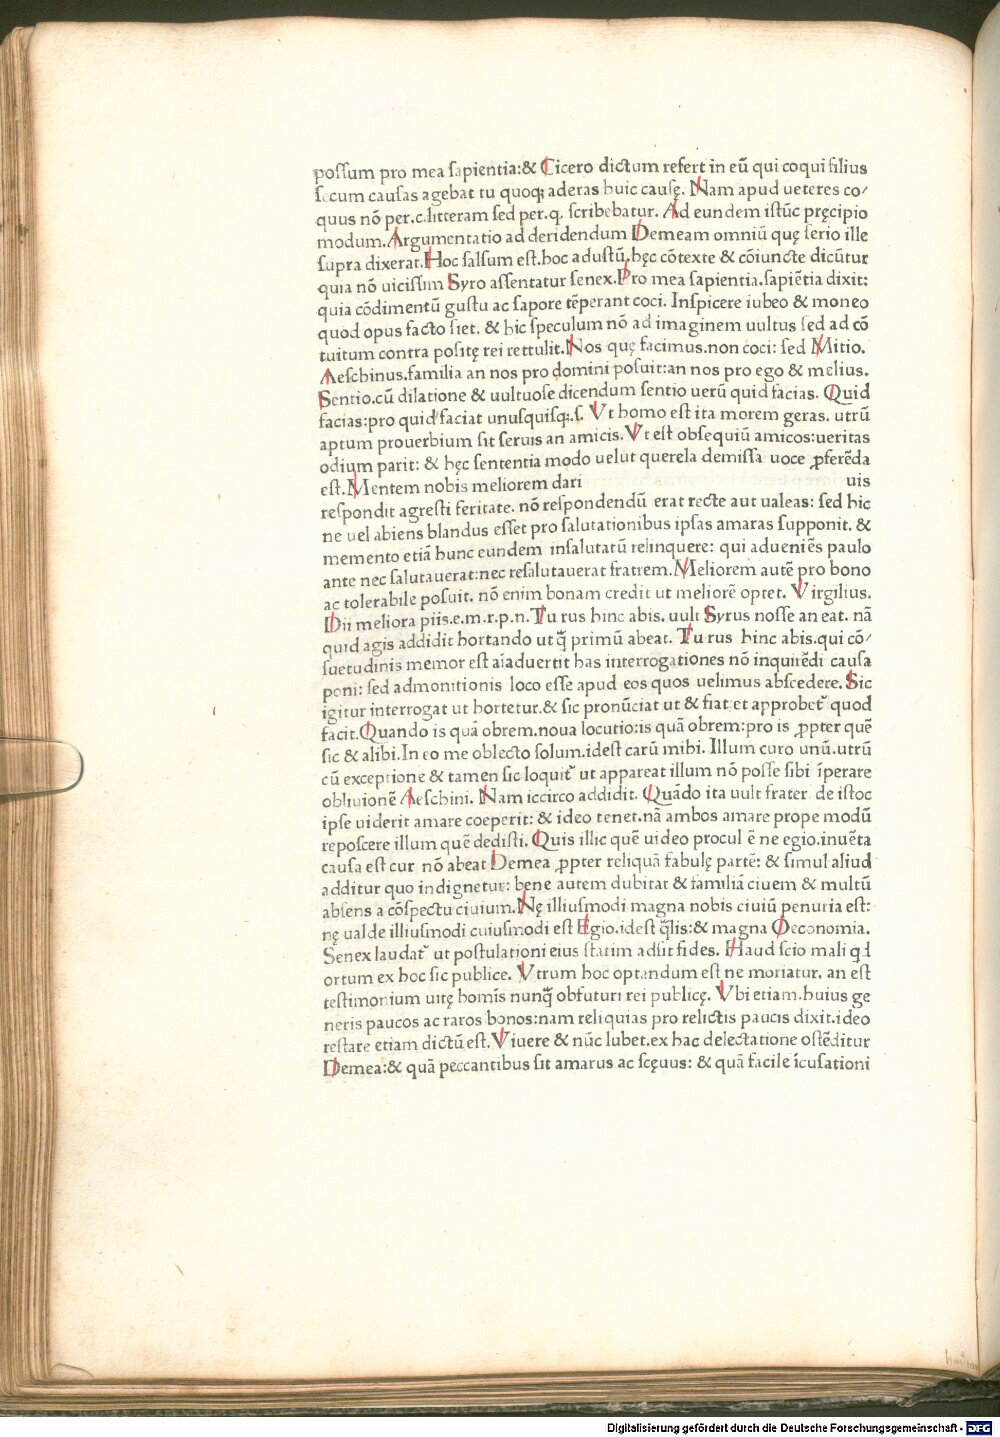 possum pro mea sapientia:& Cicero dictum refert in eũ qui coqui filius
secum causas agebat tu quoqꝫ aderas huic causę. Nam apud ueteres co⸗
quus nõ per.c.litteram sed per.q. scribebatur. Ad eundem istũc pręcipio
modum.Argumentatio ad deridendum Demeam omniũ quę serio ille
supra dixerat.Hoc salsum est.hoc adustũ.hęc cõtexte & cõiuncte dicũtur
quia nõ uicissim Syro assentatur senex.Pro mea sapientia.sapiẽtia dixit:
quia cõdimentũ gustu ac sapore tẽperant coci. Inspicere iubeo & moneo
quod opus facto siet. & hic speculum nõ ad imaginem uultus sed ad cõ
tuitum contra positę rei rettulit.Nos quę facimus.non coci: sed Mitio.
Aeschinus.familia an nos pro domini posuit:an nos pro ego & melius.
Sentio.cũ dilatione & uultuose dicendum sentio uerũ quid facias. Quid
facias:pro quid faciat unusquisqꝫ.s. Vt homo est ita morem geras. utrũ
aptum prouerbium sit seruis an amicis.Vt est obsequiũ amicos:ueritas
odium parit: & hęc sententia modo uelut querela demissa uoce ꝓferẽda
est.Mentem nobis meliorem dari uis
respondit agresti feritate. nõ respondendũ erat recte aut ualeas: sed hic
ne uel abiens blandus esset pro salutationibus ipsas amaras supponit. &
memento etiã hunc eundem insalutatũ relinquere: qui adueniẽs paulo
ante nec salutauerat:nec resalutauerat fratrem.Meliorem autẽ pro bono
ac tolerabile posuit. nõ enim bonam credit ut meliorẽ optet. Virgilius.
Dii meliora piis.e.m.r.p.n.Tu rus hinc abis. uult Syrus nosse an eat. nã
quid agis addidit hortando ut q̃ primũ abeat. Tu rus hinc abis.qui cõ⸗
suetudinis memor est aĩaduertit has interrogationes nõ inquirẽdi causa
poni: sed admonitionis loco esse apud eos quos uelimus abscedere.Sic
igitur interrogat ut hortetur.& sic pronũciat ut & fiat et approbet᷑ quod
facit.Quando is quã obrem.noua locutio:is quã obrem:pro is ꝓpter quẽ
sic & alibi.In eo me oblecto solum.idest carũ mihi. Illum curo unũ.utrũ
cũ exceptione & tamen sic loquit᷑ ut appareat illum nõ posse sibi ĩperare
obliuionẽ Aeschini. Nam iccirco addidit. Quãdo ita uult frater de istoc
ipse uiderit amare coeperit: & ideo tenet.nã ambos amare prope modũ
reposcere illum quẽ dedisti. Quis illic quẽ uideo procul ẽ ne egio.inuẽta
causa est cur nõ abeat Demea ꝓpter reliquã fabulę partẽ: & simul aliud
additur quo indignetur: bene autem dubitat & familiã ciuem & multũ
absens a cõspectu ciuium.Nę illiusmodi magna nobis ciuiũ penuria est:
nę ualde illiusmodi cuiusmodi est Egio.idest q̃lis:& magna Oeconomia.
Senex laudat᷑ ut postulationi eius statim adsit fides. Haud scio mali qd
ortum ex hoc sic publice. Vtrum hoc optandum est ne moriatur. an est
testimonium uitę homis nunq̃ obfuturi rei publicę. Vbi etiam.huius ge
neris paucos ac raros bonos:nam reliquias pro relictis paucis dixit.ideo
restare etiam dictũ est.Viuere & nũc lubet.ex hac delectatione ostẽditur
Demea:& quã peccantibus sit amarus ac scęuus: & quã facile ĩcusationi
Digitalisierung gefördert durch die Deutsche Forschungsgemeinschaft - DFG